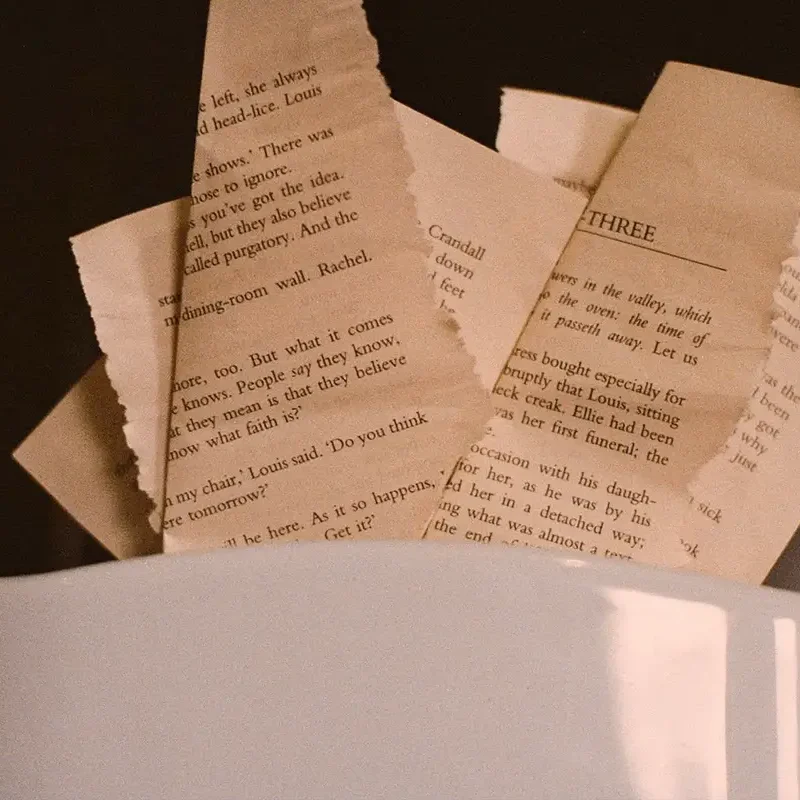 left, she always
head-lice. Louis
shows.' There was
to ignore.
you've got the idea.
but they also believe
called purgatory. And the
dining-room wall. Rachel.
too. But what it comes
knows. People say they know,
they mean is that they believe
what faith is?'
my chair,' Louis said. 'Do you think
tomorrow?'
be here. As it so happens,
Get it?'
Crandall
down
feet
-THREE
in the valley, which
the oven: the time of
it passeth away. Let us
bought especially for
that Louis, sitting
creak. Ellie had been
her first funeral; the
occasion with his daugh-
for her, as he was by his
her in a detached way;
what was almost a
the end
were
the
been
got
why
just
sick